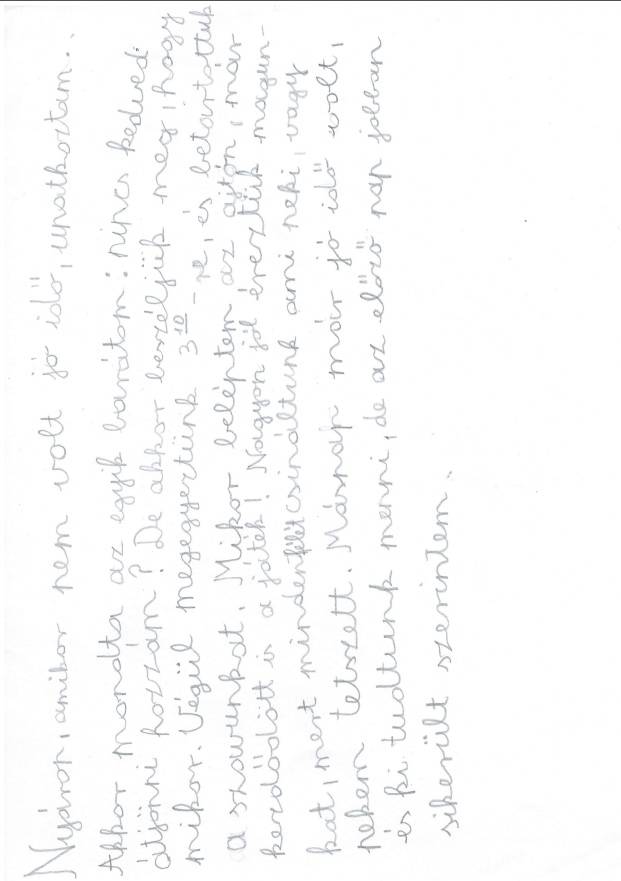 Nyáron, amikor nem volt jó idő, unatkoztam..
Akkor mondta az egyik barátom: nincs kedved
átjönni hozzám? De akkor beszéljük meg, hogy
mikor. Végül megegyeztünk 3 10 -re, és betartottuk
a szavunkat. Mikor beléptem az ajtón, már
kezdődött is a játék! Nagyon jól éreztük magun-
kat, mert mindenfélét csináltunk ami neki, vagy
nekem tetszett. Másnap már jó idő volt,
és ki tudtunk menni, de az előző nap jobban
sikerült szerintem.